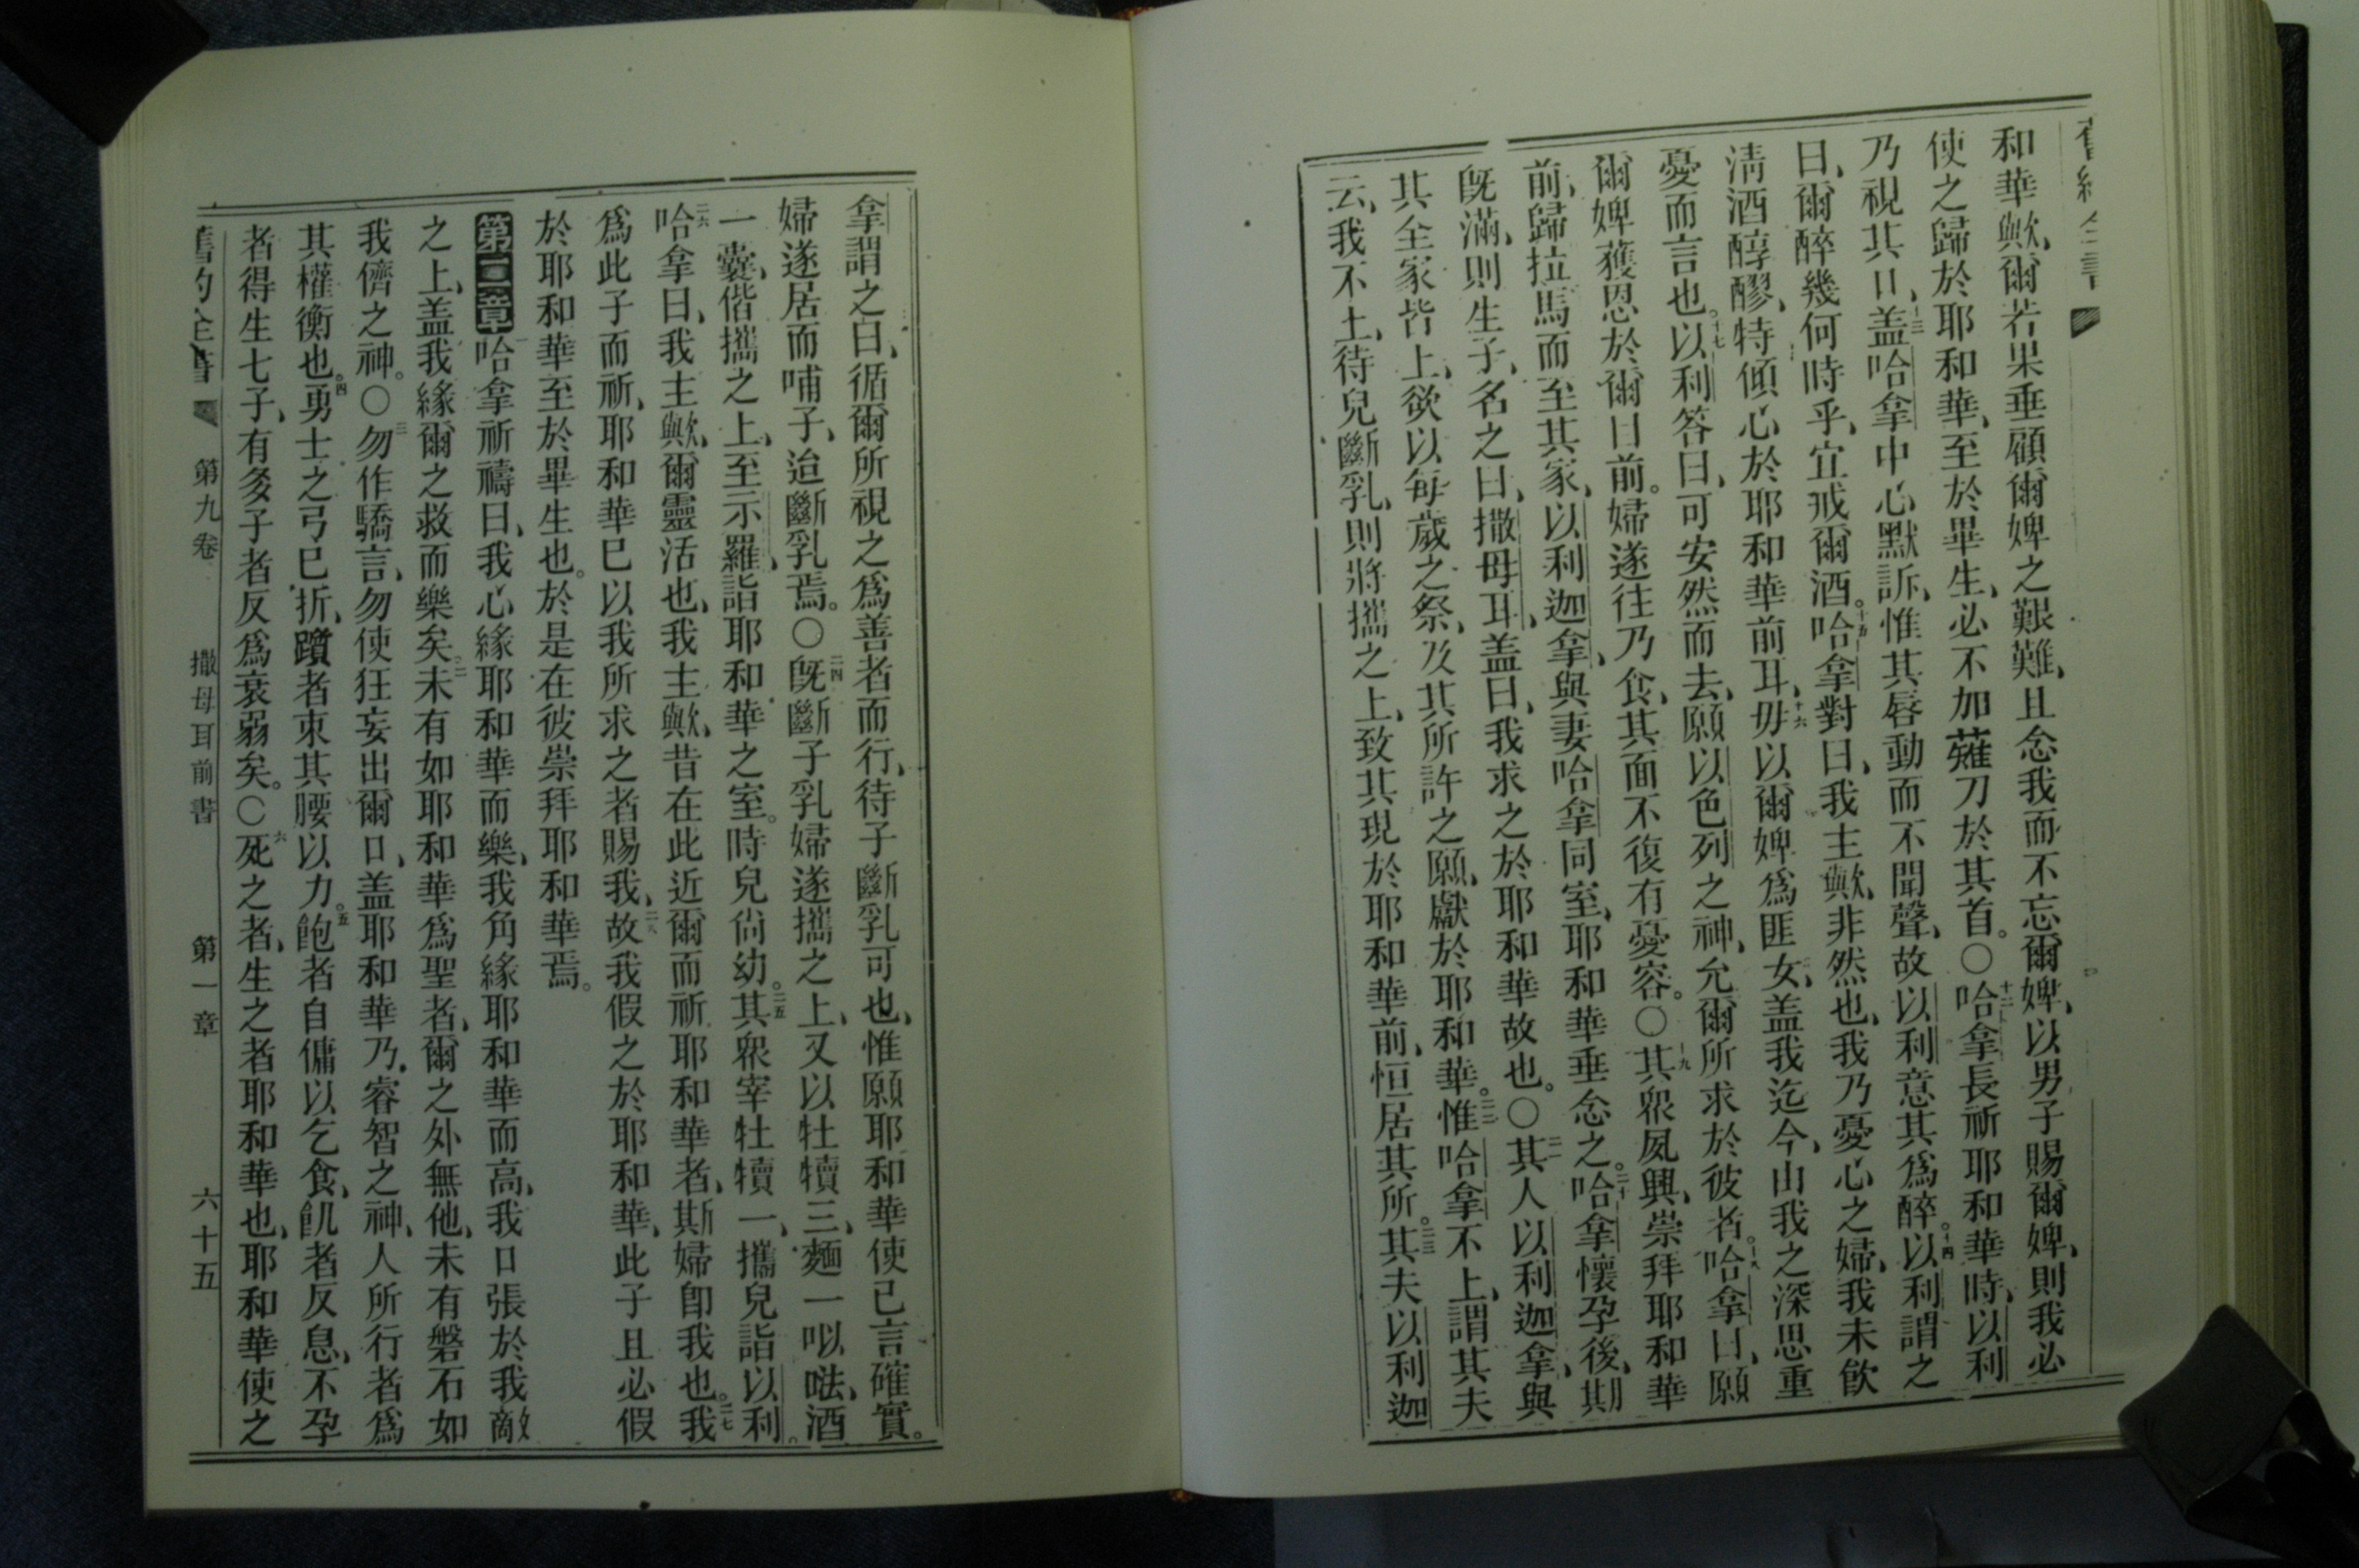 舊約全書
和華歟、爾若果垂顧爾婢之艱難、且念我而不忘爾婢、以男子賜爾婢、則我必
使之歸於耶和華、至於畢生、必不加薙刀於其首。○十二哈拿長祈耶和華時、以利
乃視其口、十三盖哈拿中心默訴、惟其唇動而不聞聲、故以利意其爲醉。十四以利謂之
曰、爾醉幾何時乎、宜戒爾酒。十五哈拿對曰、我主歟、非然也、我乃憂心之婦、我未飮
淸酒醇醪、特傾心於耶和華前耳、十六毋以爾婢爲匪女、盖我迄今、由我之深思重
憂而言也。十七以利答曰、可安然而去、願以色列之神、允爾所求於彼者。十八哈拿曰、願
爾婢獲恩於爾目前。婦遂往乃食、其面不復有憂容。○十九其眾夙興、崇拜耶和華
前、歸拉馬而至其家、以利迦拿、與妻哈拿同室、耶和華垂念之。二十哈拿懷孕後、期
旣滿、則生子、名之曰、撒母耳、盖曰、我求之於耶和華故也。○二一其人以利迦拿、與
其全家皆上、欲以每歲之祭、及其所許之願、獻於耶和華。二二惟哈拿不上、謂其夫
云、我不上、待兒斷乳、則將攜之上、致其現於耶和華前、恒居其所。二三其夫以利迦
拿謂之曰、循爾所視之爲善者而行、待子斷乳可也、惟願耶和華使已言確實。
婦遂居而哺子、迨斷乳焉。○二四旣斷子乳婦遂攜之上、又以牡犢三、麵一㕥嗌、酒
一囊、偕攜之上、至示羅、詣耶和華之室。時兒尙幼。二五其眾宰牡犢一、攜兒詣以利。
二六哈拿曰、我主歟、爾靈活也、我主歟、昔在此近爾而祈耶和華者、斯婦卽我也。二七我
爲此子而祈、耶和華已以我所求之者賜我、二八故我假之於耶和華、此子且必假
於耶和華至於畢生也。於是在彼崇拜耶和華焉。
第二章 哈拿祈禱曰、我心緣耶和華而樂、我角緣耶和華而高、我口張於我敵
之上、盖我緣爾之救而樂矣。二未有如耶和華爲聖者、爾之外無他、未有磐石如
我儕之神。○三勿作驕言、勿使狂妄出爾口、盖耶和華乃睿智之神、人所行者爲
其權衡也。四勇士之弓已折、躓者束其腰以力。五飽者自傭以乞食、飢者反息、不孕
者得生七子、有多子者反爲衰弱矣。○六死之者、生之者耶和華也、耶和華使之
舊約全書 第九卷 撒母耳前書 第一章 六十五